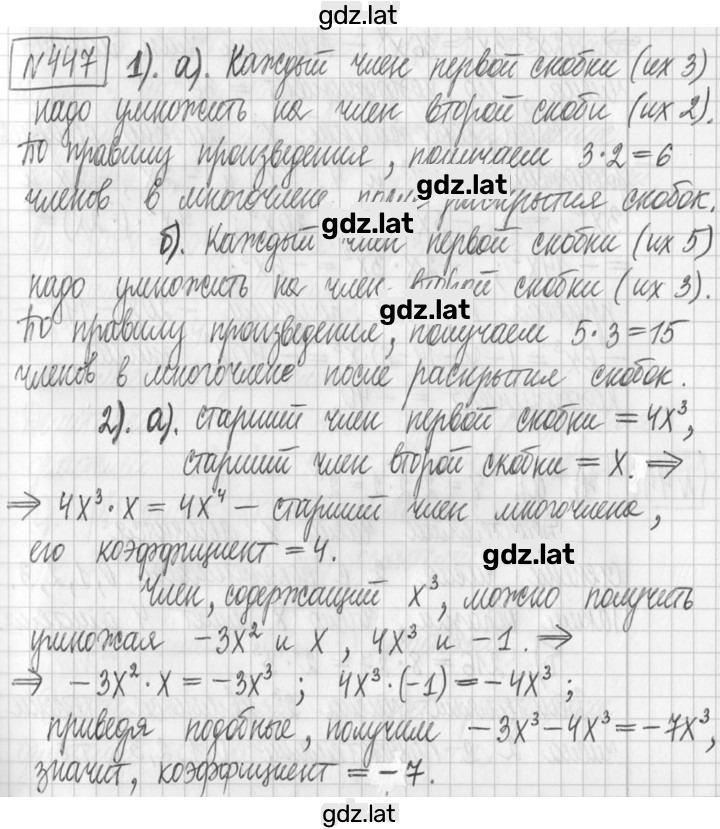 gdz.lat
№447 1). а). Каждый член первой скобки (их 3)
надо умножить на член второй скоби (их 2).
По правилу произведения, получаем 3·2=6
членов в многочлене после раскрытия скобок.
gdz.lat
gdz.lat
б). Каждый член первой скобки (их 5)
надо умножить на член второй скобки (их 3).
gdz.lat
По правилу произведения, получаем 5·3=15
членов в многочлене после раскрытия скобок.
2). а). старший член первой скобки = 4x³,
старший член второй скобки = x. ⇒
⇒ 4x³·x = 4x⁴ – старший член многочлена,
его коэффициент = 4.
gdz.lat
Член, содержащий x³, можно получить
умножая -3x² и x, 4x³ и -1. ⇒
⇒ -3x²·x = -3x³; 4x³·(-1) = -4x³;
приведя подобные, получим -3x³-4x³=-7x³,
значит, коэффициент = -7.
gdz.lat